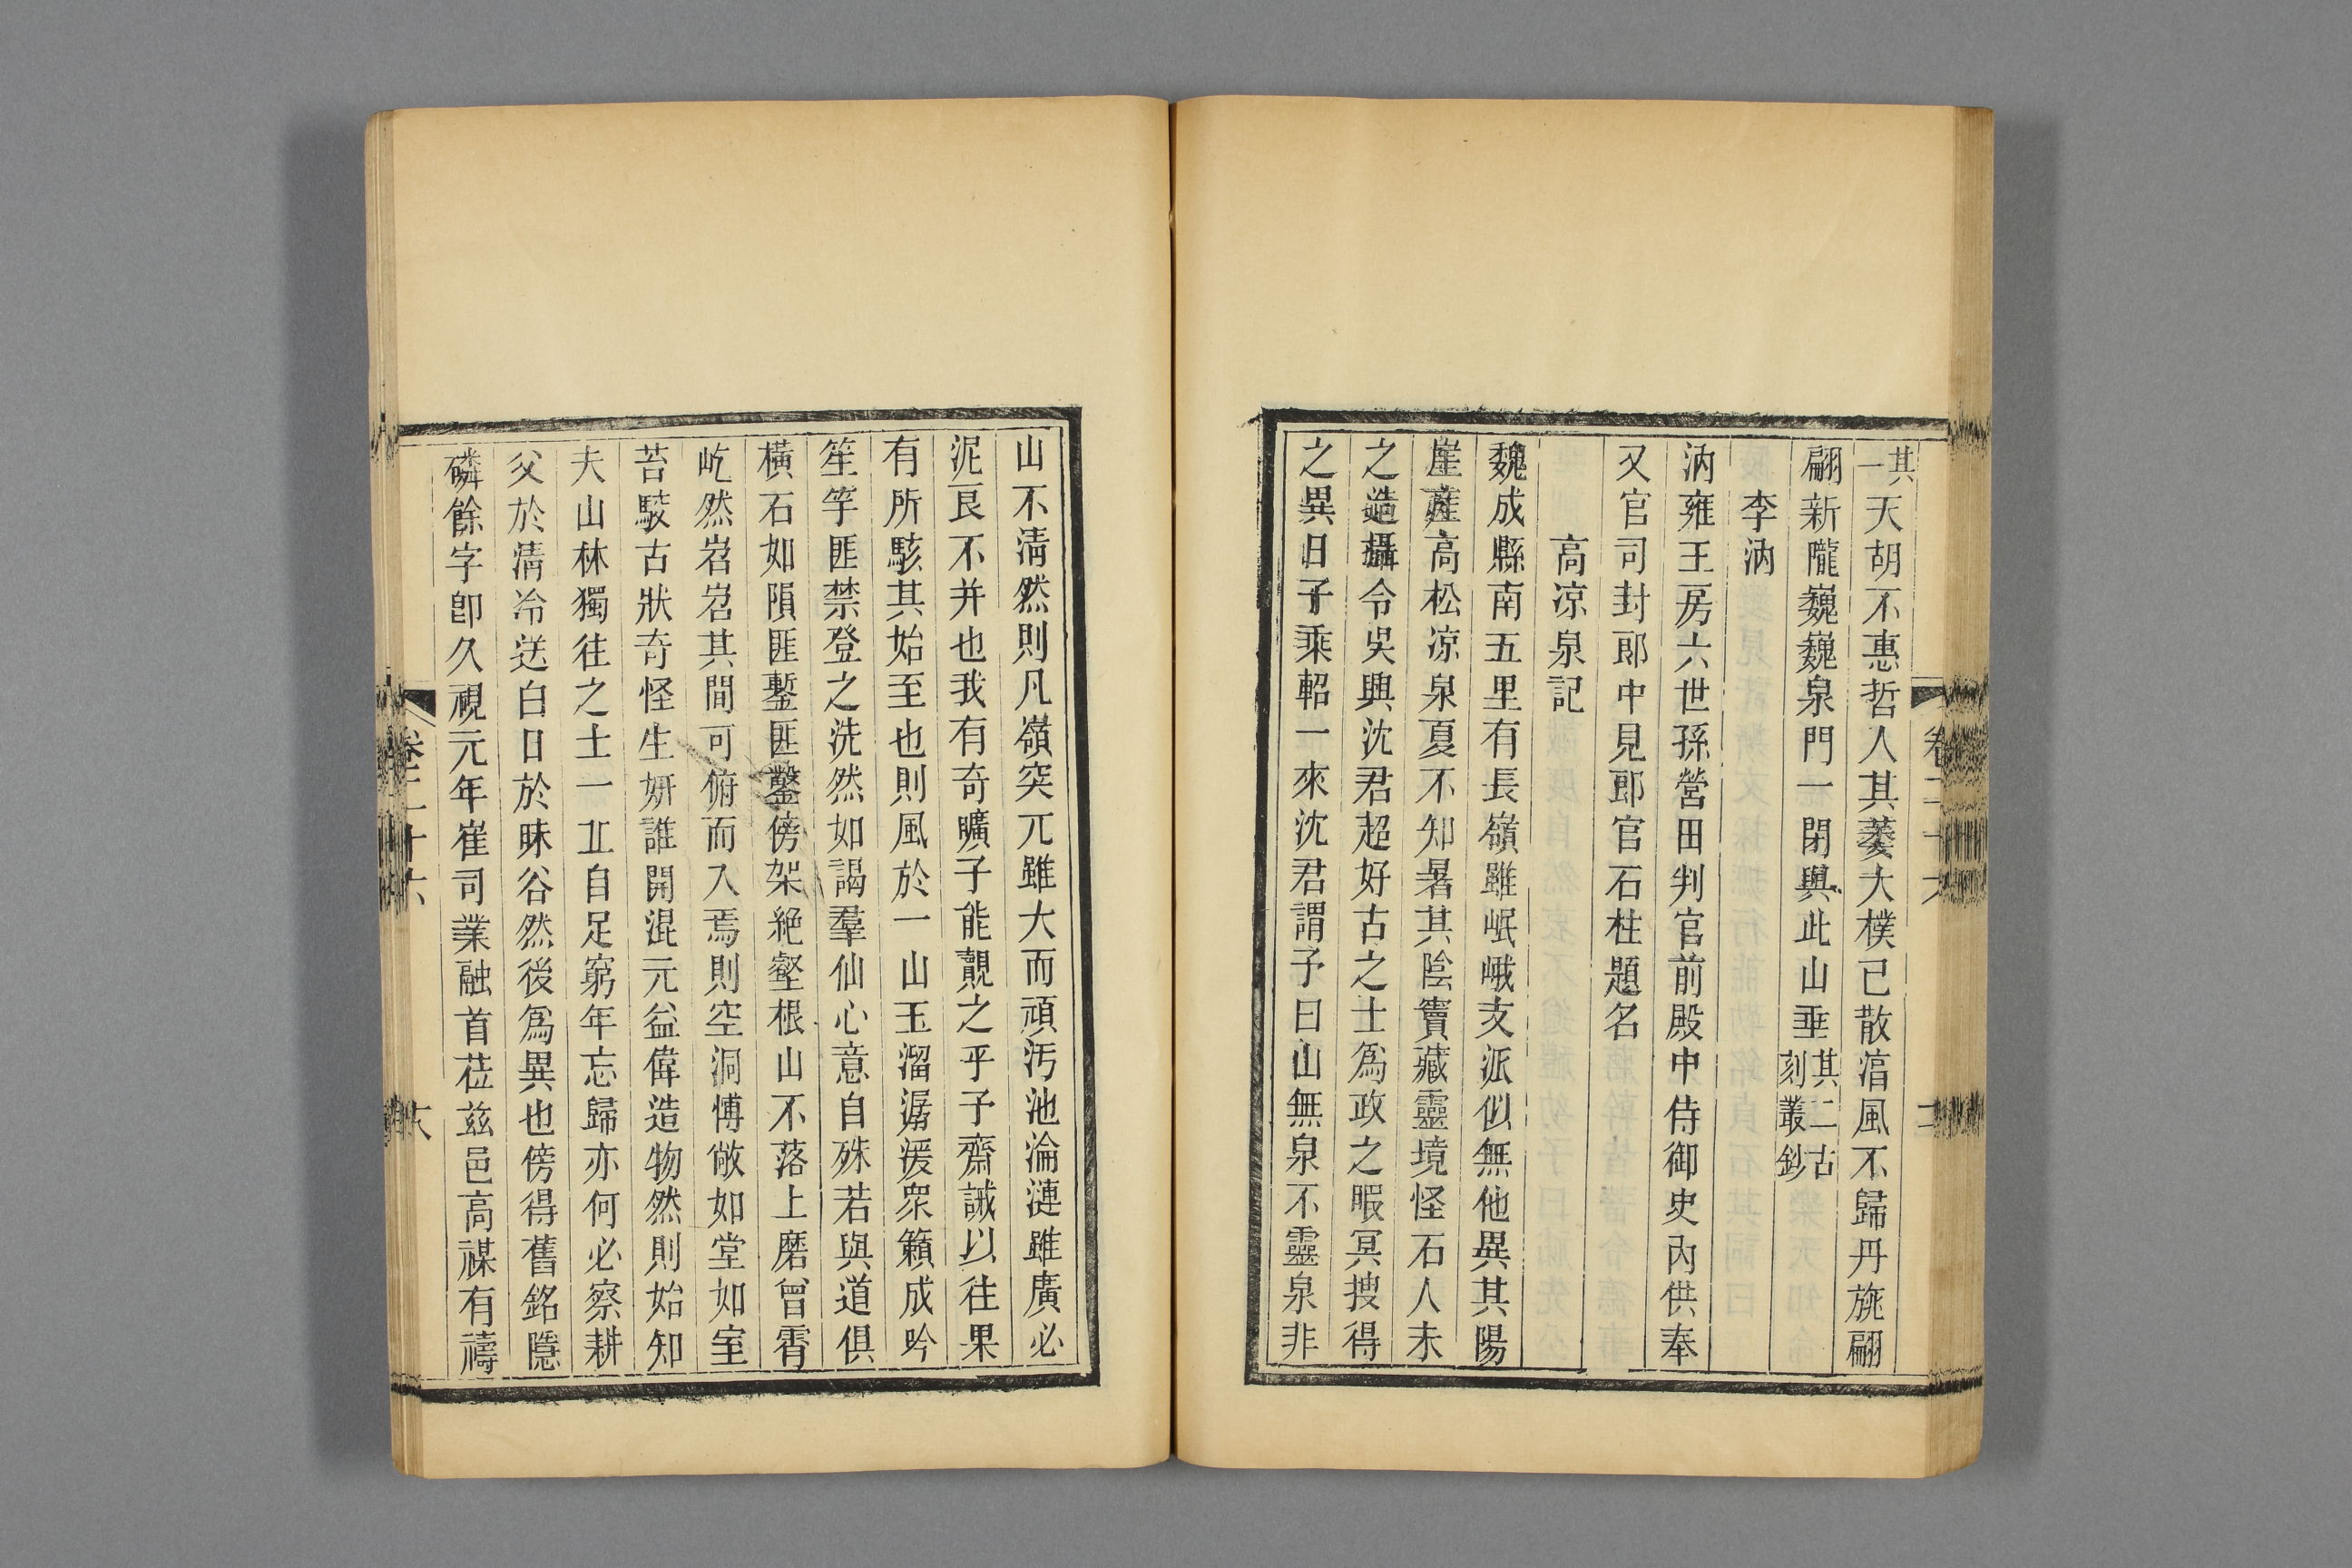 其一天胡不惠哲人其萎大樸已散湻風不歸丹旐翩
翩新隴巍巍泉門一閉與此山垂其二古刻叢鈔
李汭
汭雍王房六世孫營田判官前殿中侍御史內供奉
又官司封郎中見郎官石柱題名
高凉泉記
魏成縣南五里有長嶺雖岷峨支派似無他異其陽
崖薩高松凉泉夏不知暑其陰竇藏靈境怪石人未
之造攝令吳興沈君超好古之士爲政之暇冥搜得
之異日子乘軺一來沈君謂予曰山無泉不靈泉非
山不淸然則凡嶺突兀雖大而頑汚池淪漣雖廣必
泥艮不并也我有奇曠子能覿之乎予齋誠以往果
有所駭其始至也則風於一山玉溜潺湲衆籟成吟
笙竽匪禁登之洗然如謁羣仙心意自殊若與道俱
橫石如隕匪鏨匪鑿傍架絶壑根山不落上磨曾霄
屹然岧岧其間可俯而入焉則空洞博敞如堂如室
苔駮古狀奇怪生妍誰開混元益偉造物然則始知
夫山林獨往之士一丘自足窮年忘歸亦何必察耕
父於淸冷送白日於昧谷然後爲異也傍得舊銘隱
磷餘字卽久視元年崔司業融首莅兹邑高禖有禱
卷二十六
卷二十六
六